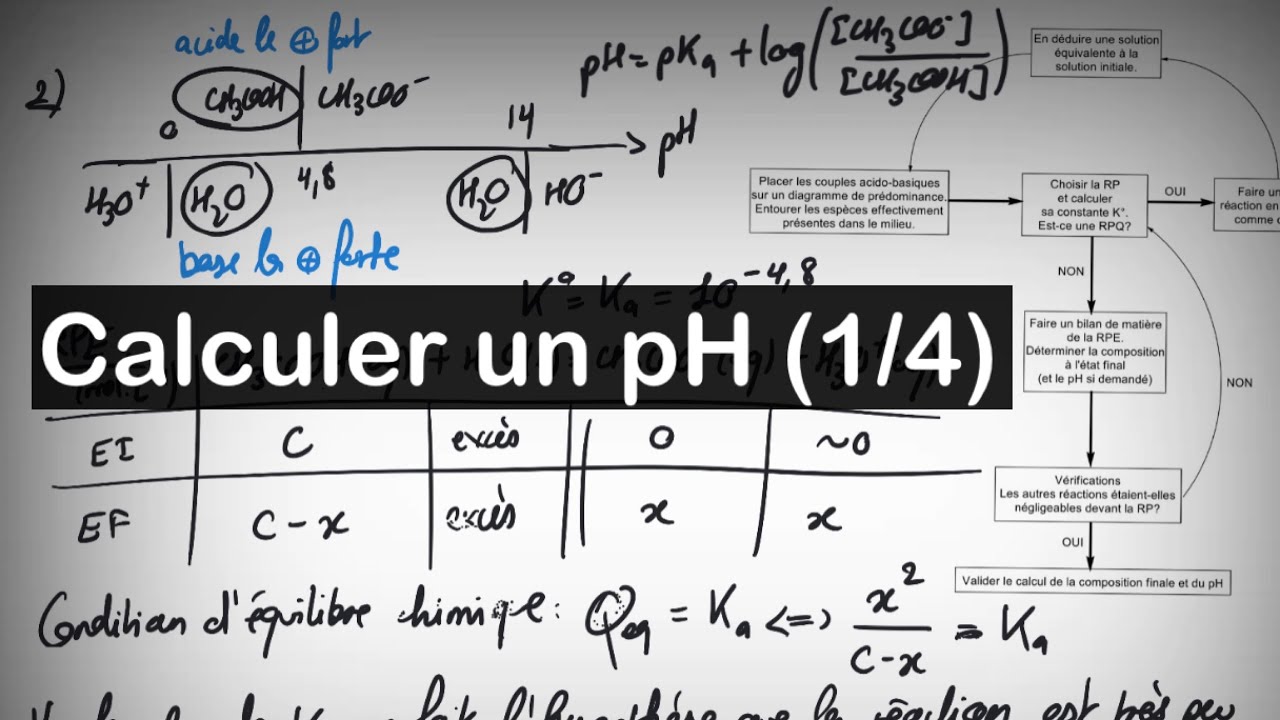 acide le ⊕ fort
2)
CH₃COOH | CH₃COO⁻
0
14
pH
H₃O⁺ | H₂O
4,8
H₂O | HO⁻
base la ⊕ forte
pH = pKa + log([CH₃COO⁻]/[CH₃COOH])
K° = Ka = 10^-4,8
Calculer un pH (1/4)
EI | C | excès | 0 | ~0
EF | C-x | excès | x | x
Condition d'équilibre chimique : Qeq = Ka <=> x²/(C-x) = Ka
fait l'hypothèse que la réaction est très peu
En déduire une solution
équivalente à la
solution initiale.
Placer les couples acido-basiques
sur un diagramme de prédominance.
Entourer les espèces effectivement
présentes dans le milieu.
Choisir la RP
et calculer
sa constante K°.
Est-ce une RPQ?
OUI
Faire un
réaction en
comme
NON
Faire un bilan de matière
de la RPE.
Déterminer la composition
à l'état final
(et le pH si demandé)
NON
Vérifications
Les autres réactions étaient-elles
négligeables devant la RP?
OUI
Valider le calcul de la composition finale et du pH